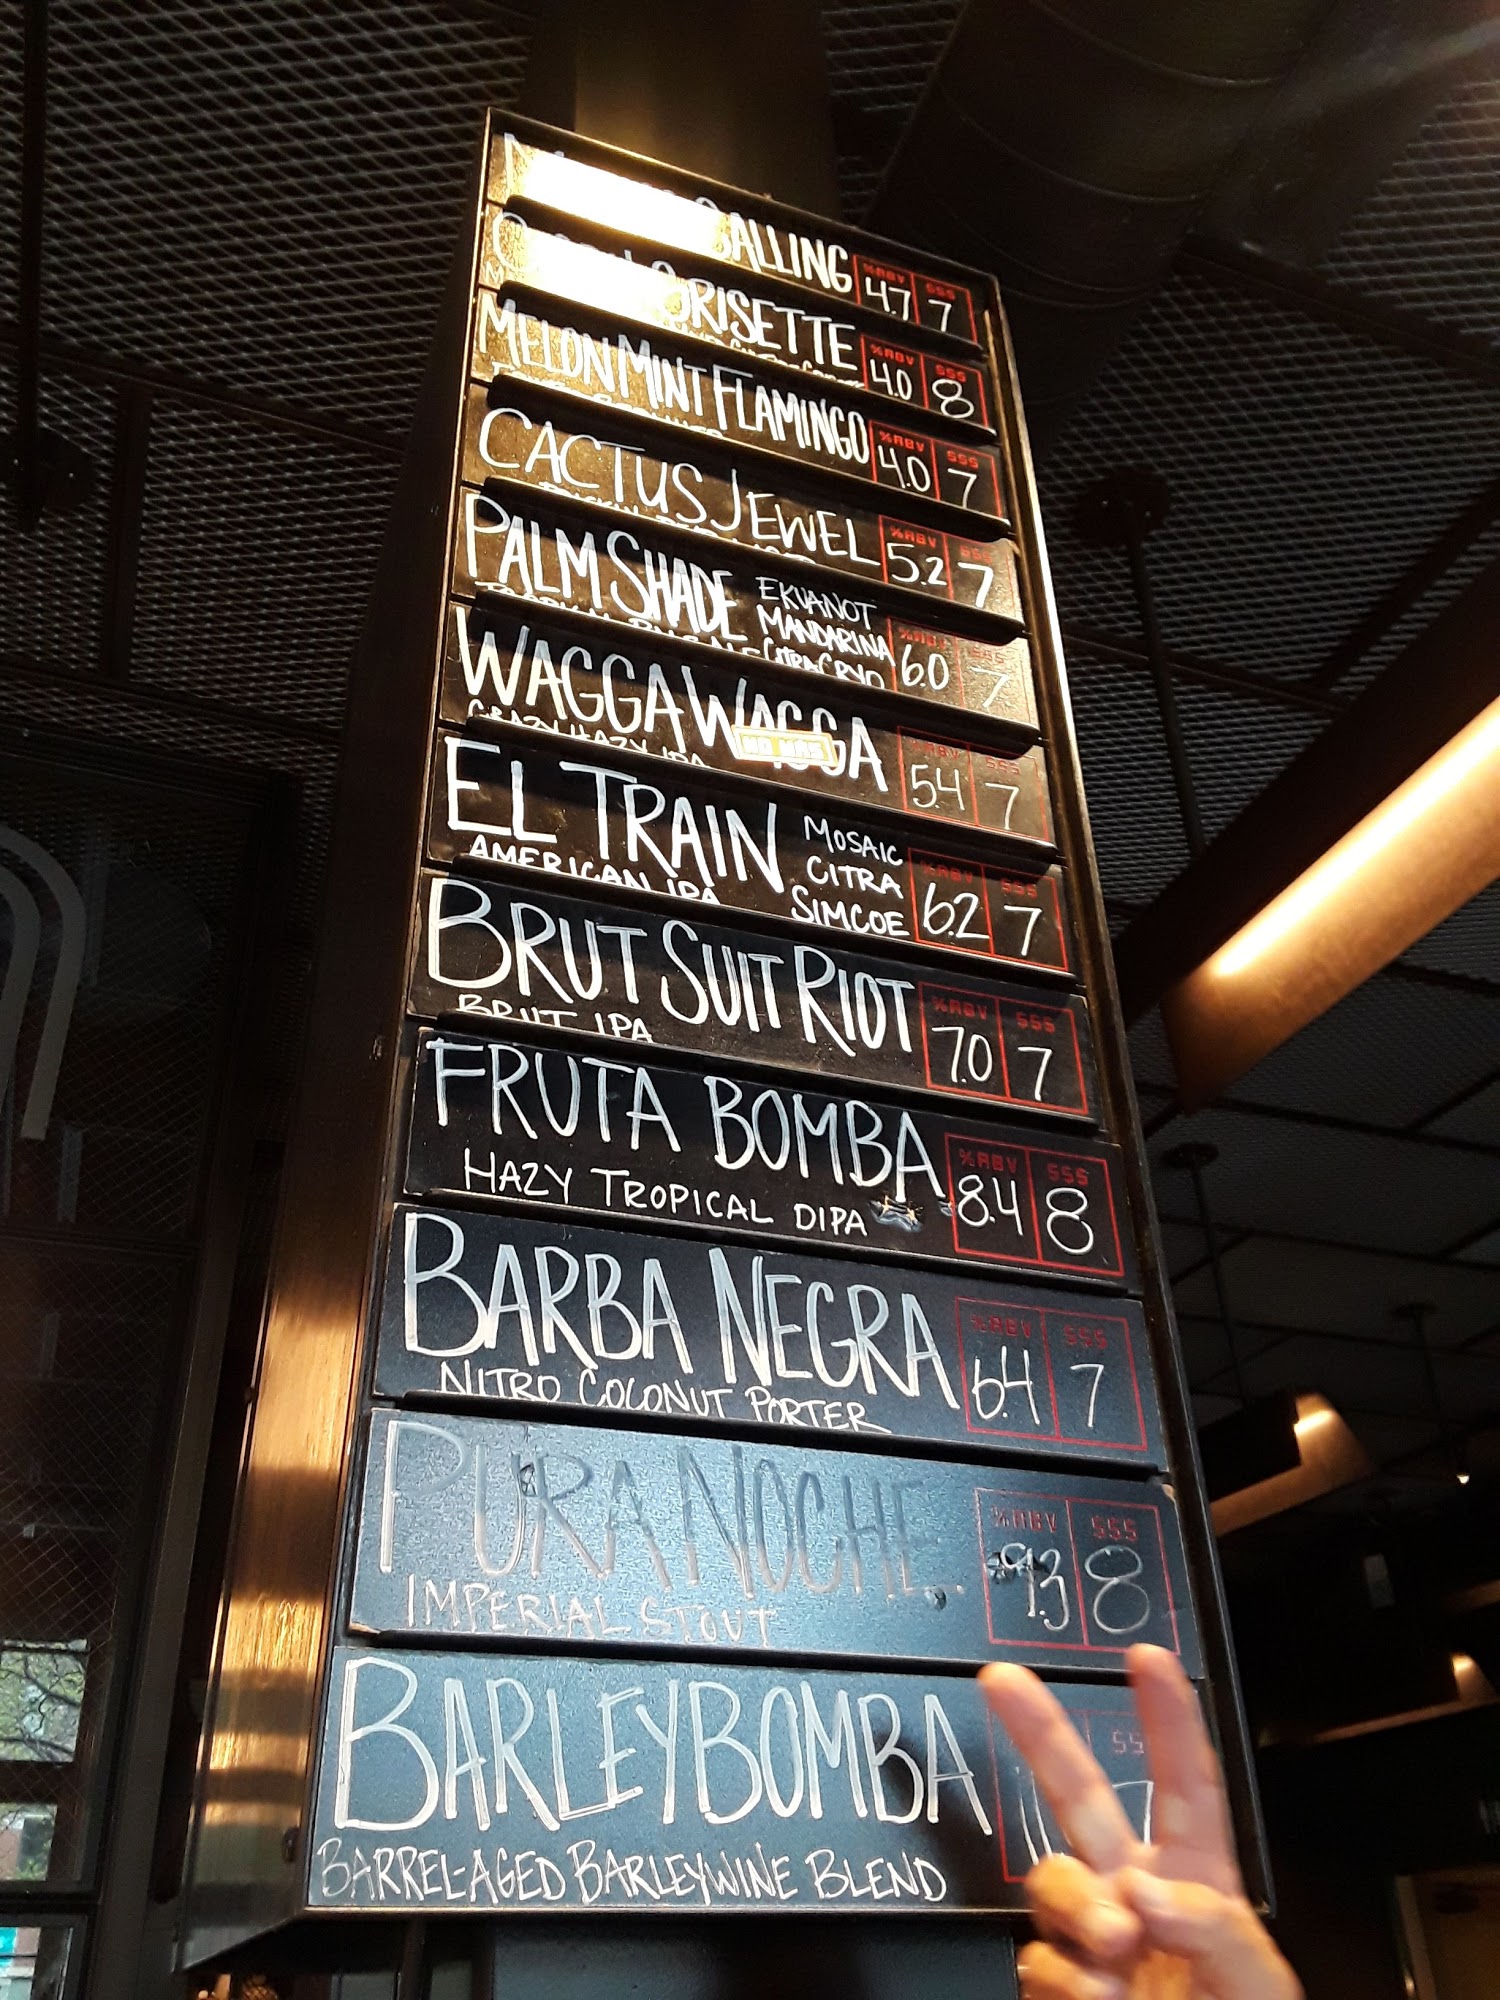 CALLING
%ABV $$$
4.7 7
GRISETTE
%ABV $$$
4.0 8
MELON MINT FLAMINGO
%ABV $$$
4.0 7
CACTUS JEWEL
%ABV $$$
5.2 7
PALM SHADE
EKUANOT
MANDARINA
CITRA CRYO
%ABV $$$
6.0 7
WAGGA WAGGA
NO MAS
CRAZY HAZY IPA
%ABV $$$
5.4 7
EL TRAIN
AMERICAN IPA
MOSAIC
CITRA
SIMCOE
%ABV $$$
6.2 7
BRUT SUIT RIOT
BRUT IPA
%ABV $$$
7.0 7
FRUTA BOMBA
HAZY TROPICAL DIPA
%ABV $$$
8.4 8
BARBA NEGRA
NITRO COCONUT PORTER
%ABV $$$
6.4 7
PURA NOCHE
IMPERIAL STOUT
%ABV $$$
9.3 8
BARLEYBOMBA
BARREL-AGED BARLEYWINE BLEND